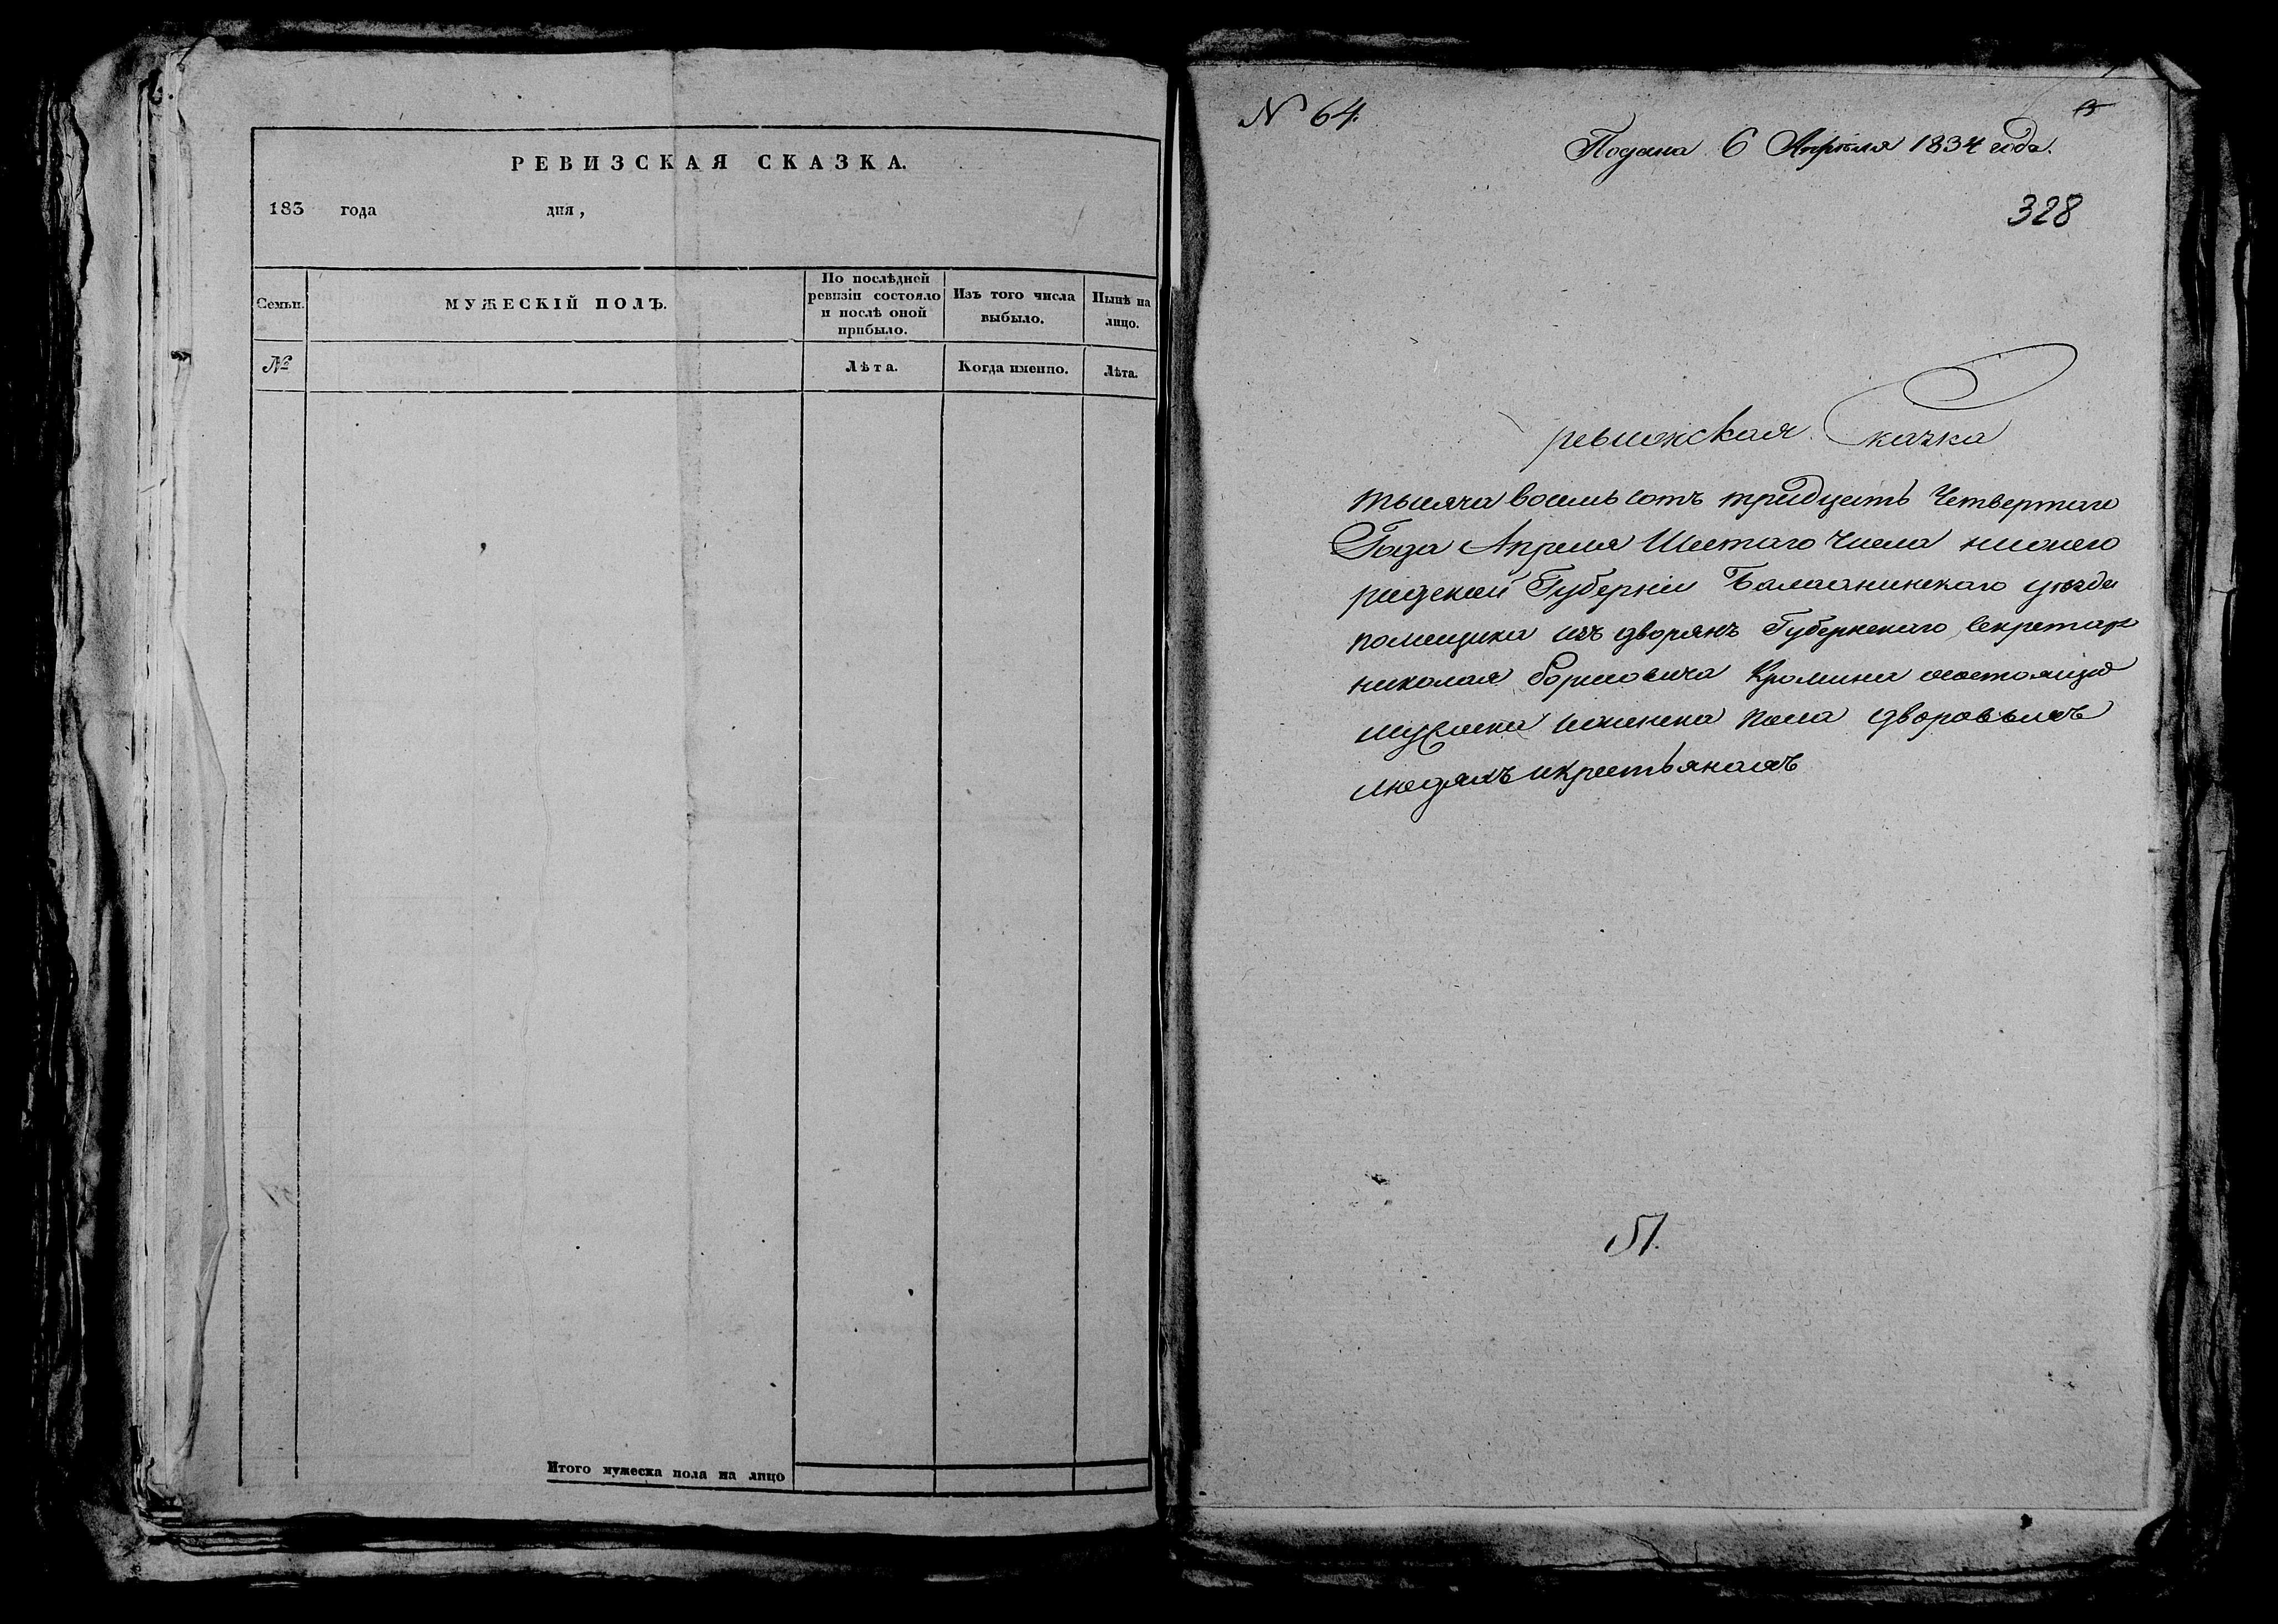 РЕВИЗСКАЯ СКАЗКА.
183 года дня,
Семьи.
МУЖЕСКІЙ ПОЛЪ.
По послѣдней
ревизіи состояло
и послѣ оной
прибыло.
Изъ того числа
выбыло.
Нынѣ на
лицо.
№
Лѣта.
Когда именно.
Лѣта.
Итого мужеска пола на лицо
N 64.
Подана 6 Апрѣля 1834 года.
328
ревижская Сказка
тысяча восемь сотъ тридцать Четвертаго
Года Апреля Шестаго Числа нижего
родской Губерніи Балахнинскаго уѣзда
помещика изъ дворянъ Губернскаго Секретаря
николая борисовича Кромина состоящіе
мужска иженска пола дворовымъ
людямъ икрестьянамъ
51.